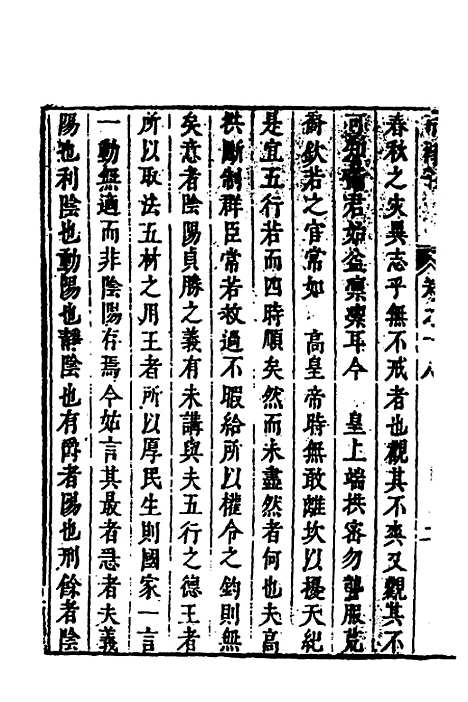 卷之十八
二
春秋之災異志乎無不戒者也觀其不爽又觀其不
可知爾君始益稟稟耳今　皇上端拱宻勿聾服荒
裔欽若之官常如　高皇帝時無敢離次以擾天紀
是宜五行若而四時順矣然而未盡然者何也夫高
拱斷制群臣常若救過不暇給所以權令之鈞則無
矣意者陰陽貞勝之義有未講與夫五行之德王者
所以取法五材之用王者所以厚民生則國家一言
一動無適而非陰陽存焉今姑言其最者惎者夫義
陽也利陰也動陽也靜陰也有爵者陽也刑餘者陰